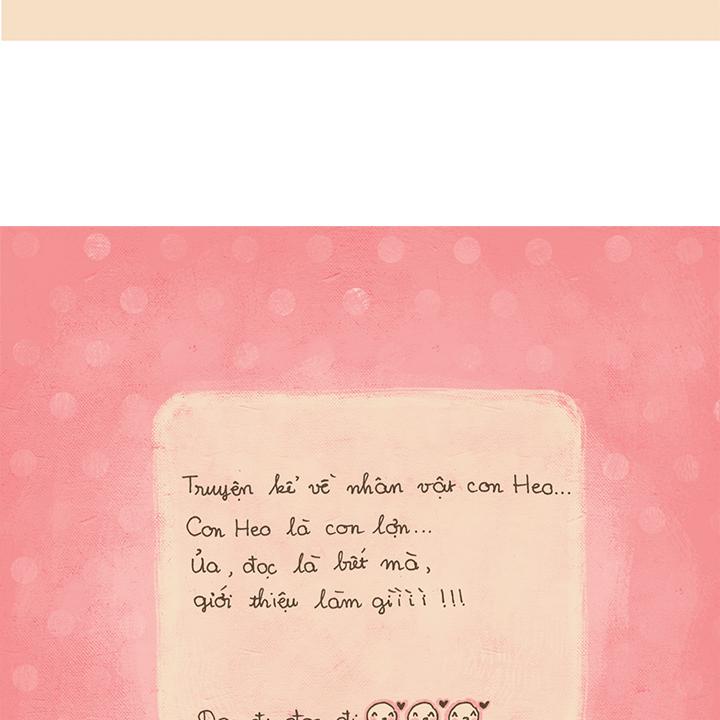 Truyện kể về nhân vật con Heo...
Con Heo là con lợn...
Ủa, đọc là biết mà,
giới thiệu làm giìììì !!!